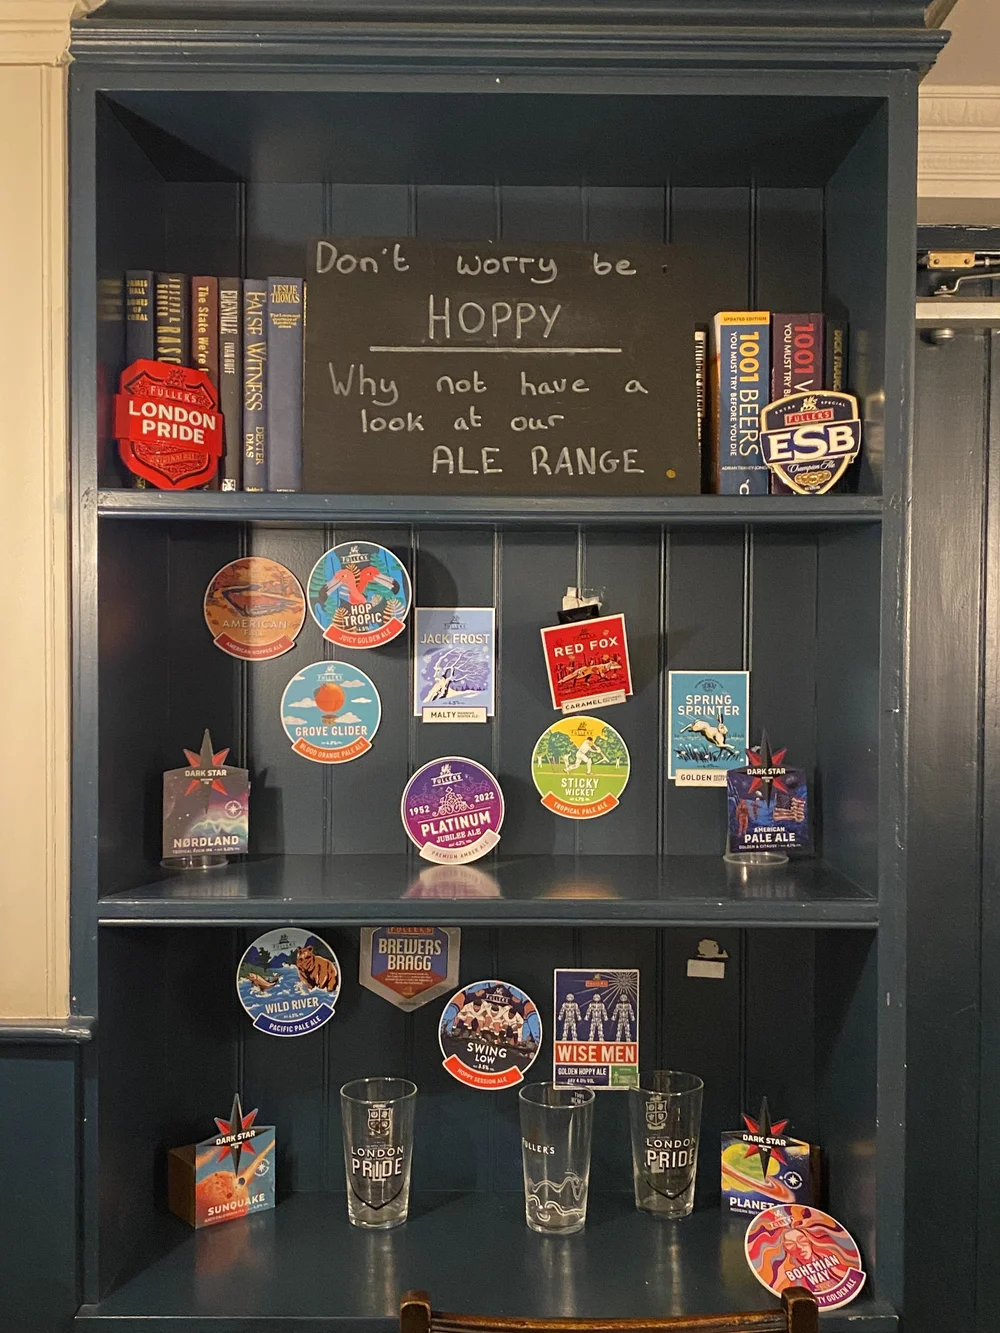 Don't worry be
HOPPY
Why not have a
look at our
ALE RANGE
The State We're
EDENVILLE
FALSE WITNESS
DEXTER
DIAS
LESLIE
THOMAS
FULLER'S
LONDON
PRIDE
UPDATED EDITION
1001 BEERS
YOU MUST TRY BEFORE YOU DIE
1001
YOU MUST TRY
FULLER'S
ESB
Champion Ale
AMERICAN
AMERICAN HOPPED ALE
FULLER'S
HOP
TROPIC
JUICY GOLDEN ALE
FULLER'S
GROVE GLIDER
BLOOD ORANGE PALE ALE
JACK FROST
MALTY
RED FOX
CARAMEL
SPRING
SPRINTER
GOLDEN
STICKY
WICKET
TROPICAL PALE ALE
FULLER'S
1952 2022
PLATINUM
JUBILEE ALE
PREMIUM AMBER ALE
DARK STAR
NØRDLAND
DARK STAR
AMERICAN
PALE ALE
FULLER'S
WILD RIVER
PACIFIC PALE ALE
FULLER'S
BREWERS
BRAGG
FULLER'S
SWING
LOW
HOPPY SESSION ALE
WISE MEN
GOLDEN HOPPY ALE
DARK STAR
SUNQUAKE
LONDON
PRIDE
FULLER'S
LONDON
PRIDE
DARK STAR
PLANET
BOHEMIAN
WAY
TY GOLDEN ALE